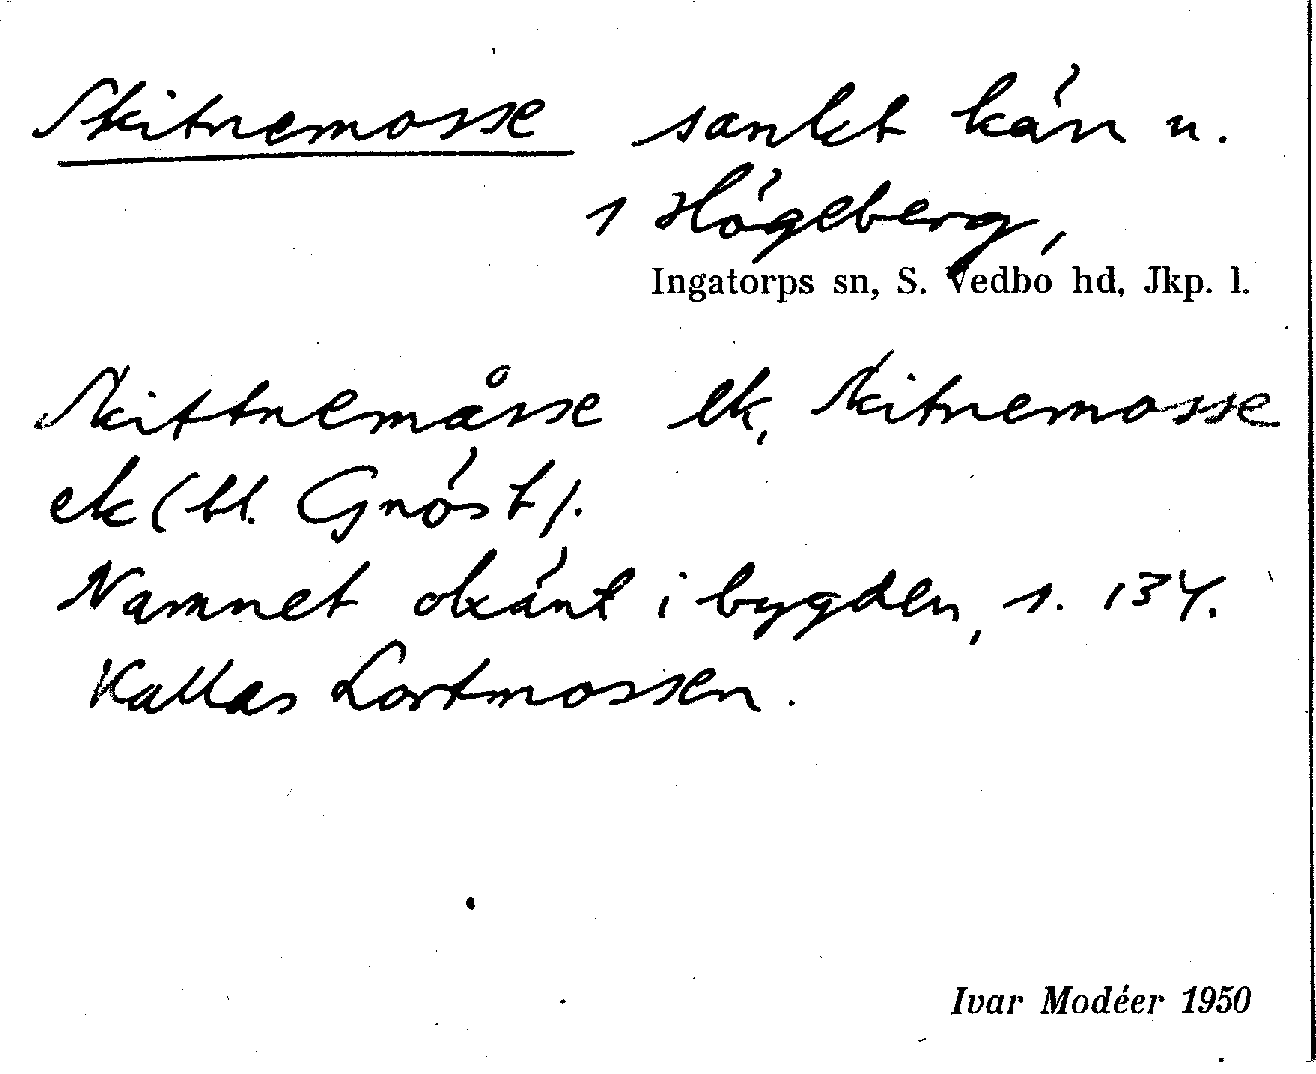 Skitnemosse sankt kärr u.
1 Högeberg,
Ingatorps sn, S. Vedbo hd, Jkp. l.
Skittnemåsse ek, Skitnemosse
ek (bl. Gnöst).
Namnet okänt i bygden, s. 134.
Kallas Lortmossen.
Ivar Modéer 1950